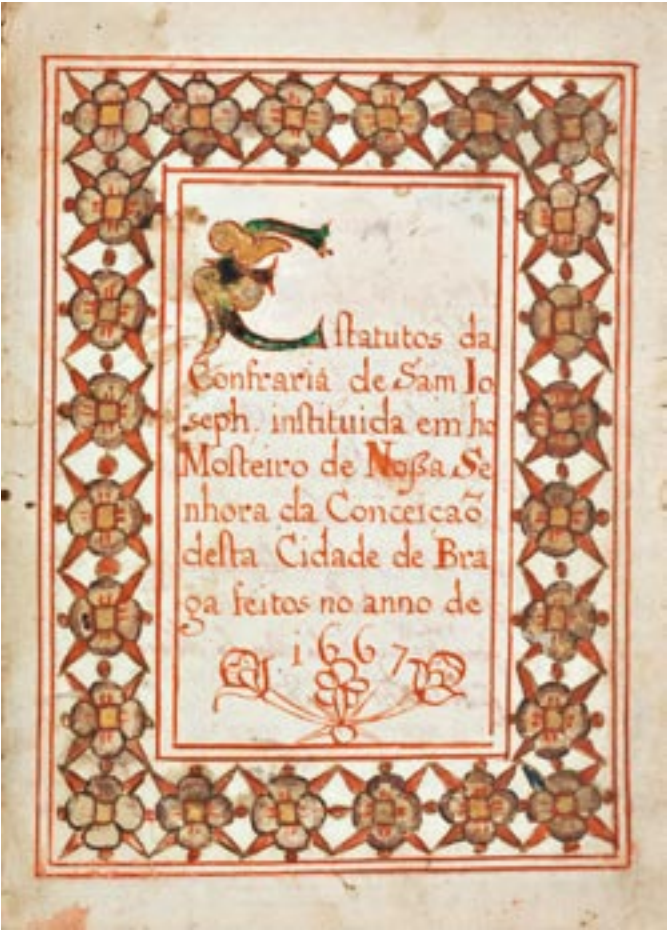 Estatutos da
Confraria de Sam Io
seph. instituida em ho
Mosteiro de Noßa Se
nhora da Conceicaõ
desta Cidade de Bra
ga feitos no anno de
1667